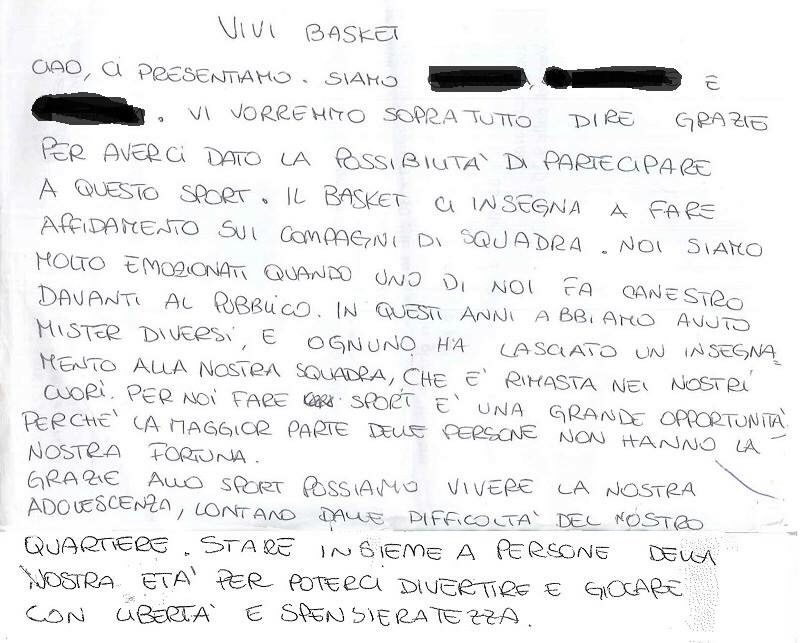 VIVI BASKET
CIAO, CI PRESENTIAMO. SIAMO , E
. VI VORREMMO SOPRATUTTO DIRE GRAZIE
PER AVERCI DATO LA POSSIBILITÀ DI PARTECIPARE
A QUESTO SPORT. IL BASKET CI INSEGNA A FARE
AFFIDAMENTO SUI COMPAGNI DI SQUADRA. NOI SIAMO
MOLTO EMOZIONATI QUANDO UNO DI NOI FA CANESTRO
DAVANTI AL PUBBLICO. IN QUESTI ANNI ABBIAMO AVUTO
MISTER DIVERSI, E OGNUNO HA LASCIATO UN INSEGNA
MENTO ALLA NOSTRA SQUADRA, CHE E' RIMASTA NEI NOSTRI
CUORI. PER NOI FARE SPORT E' UNA GRANDE OPPORTUNITÀ
PERCHE' LA MAGGIOR PARTE DELLE PERSONE NON HANNO LA
NOSTRA FORTUNA.
GRAZIE ALLO SPORT POSSIAMO VIVERE LA NOSTRA
ADOLESCENZA, LONTANO DALLE DIFFICOLTA' DEL NOSTRO
QUARTIERE. STARE INSIEME A PERSONE DELLA
NOSTRA ETA' PER POTERCI DIVERTIRE E GIOCARE
CON LIBERTA' E SPENSIERATEZZA.